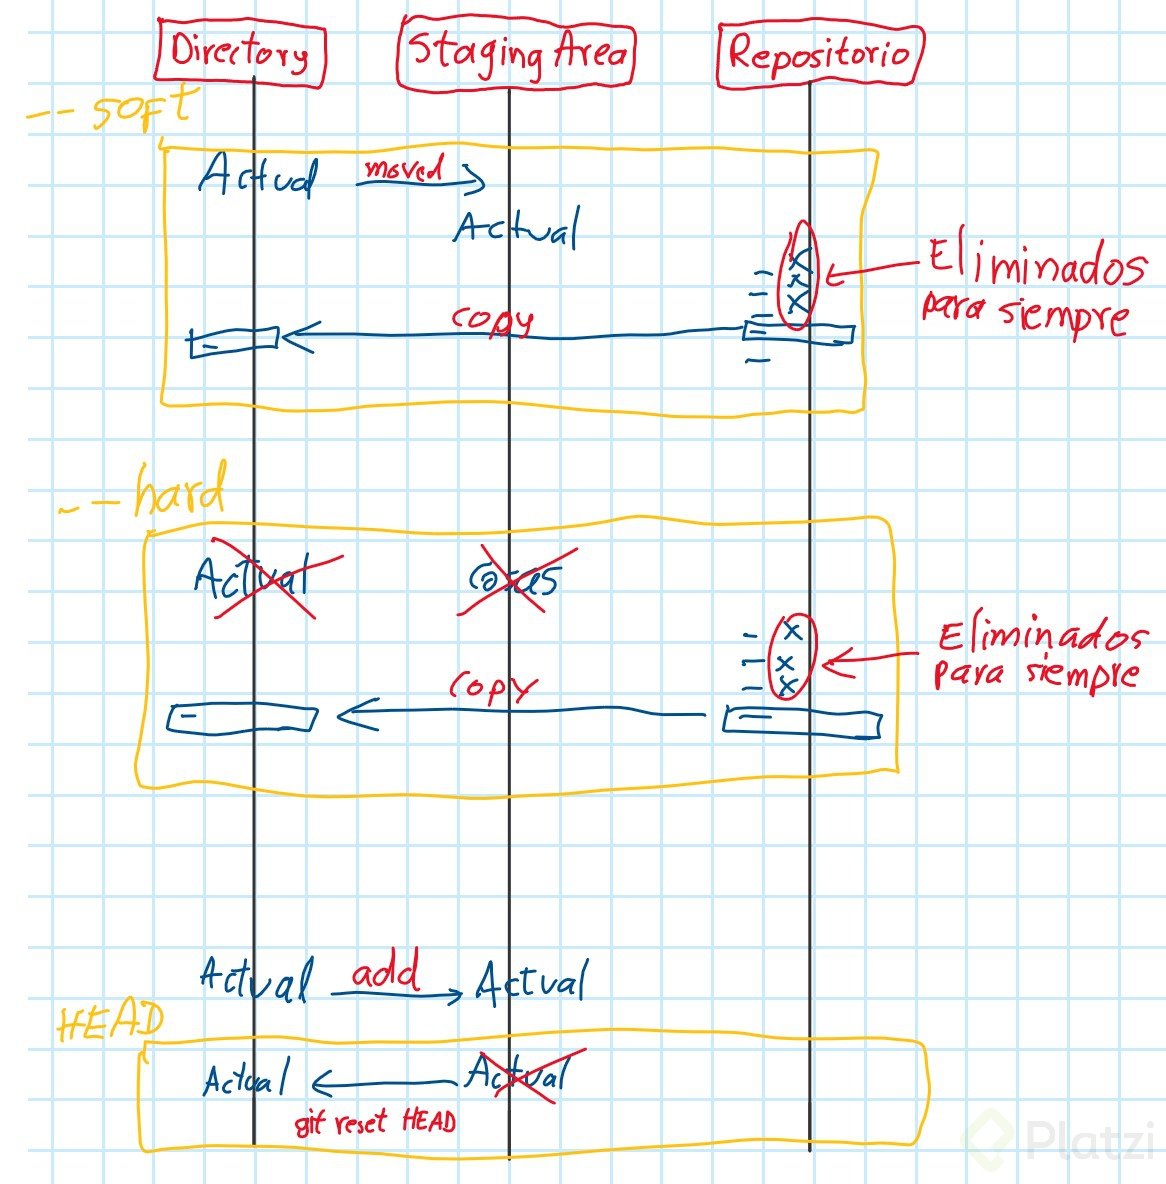 Directory
Staging Area
Repositorio
-- soft
Actual
moved
Actual
Eliminados
para siempre
copy
-- hard
Actual
Eliminados
para siempre
copy
Actual
add
Actual
HEAD
Actual
Actual
git reset HEAD
Platzi